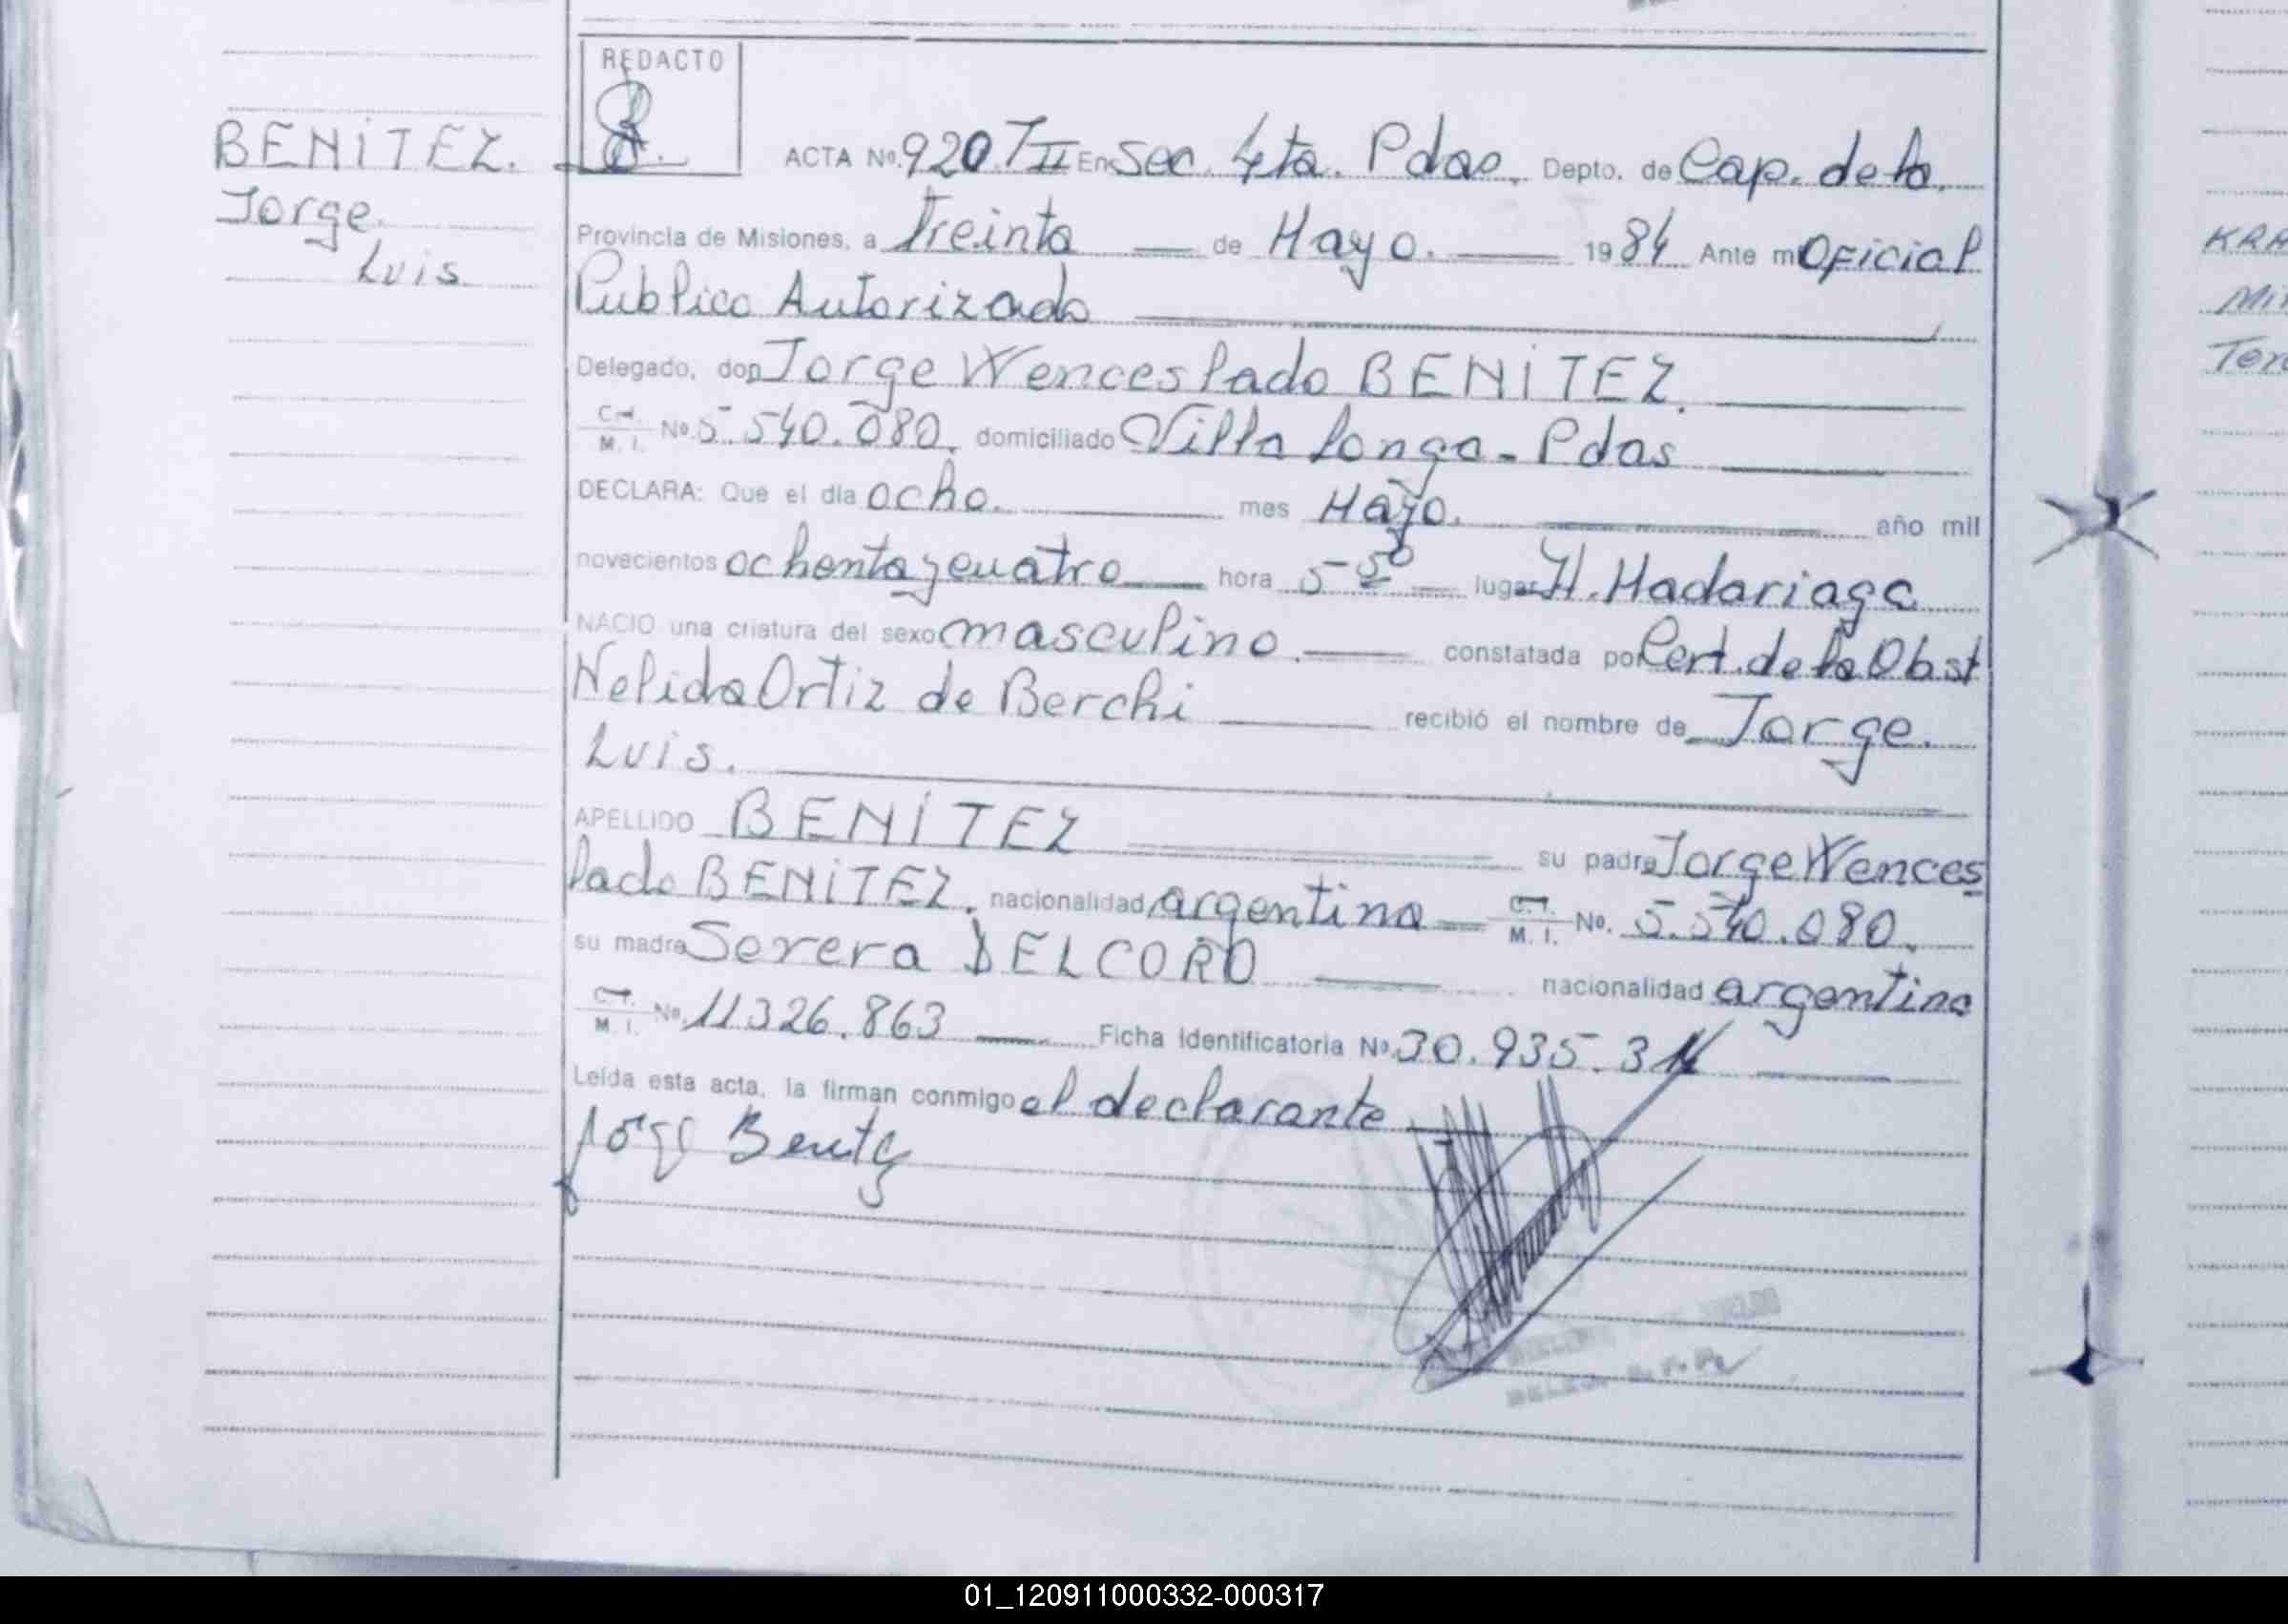 REDACTO
BENITEZ.
Jorge
Luis
ACTA Nº. 920. TII En Sec. 4ta. Pdas. Depto. de Cap. de la
Provincia de Misiones, a treinta de Mayo. 1984 Ante mi Oficial
Publico Autorizado
Delegado, don Jorge Wenceslado BENITEZ.
M. I. Nº 5.540.080. domiciliado Villa Longa - Pdas
DECLARA: Que el día ocho. mes Mayo. año mil
novecientos ochenta y cuatro hora 5-50 lugar H. Madariaga
NACIO una criatura del sexo masculino. constatada por Cert. de la Obst
Nelida Ortiz de Berchi recibió el nombre de Jorge.
Luis.
APELLIDO BENITEZ su padre Jorge Wences
lado BENITEZ. nacionalidad argentina M. I. Nº. 5.540.080.
su madre Serera DELCORO nacionalidad argentina
M. I. Nº. 11326.863 Ficha Identificatoria Nº. 30.935.3
Leída esta acta, la firman conmigo el declarante
Jorge Benitez
KRA
Mi
Ter
01_120911000332-000317